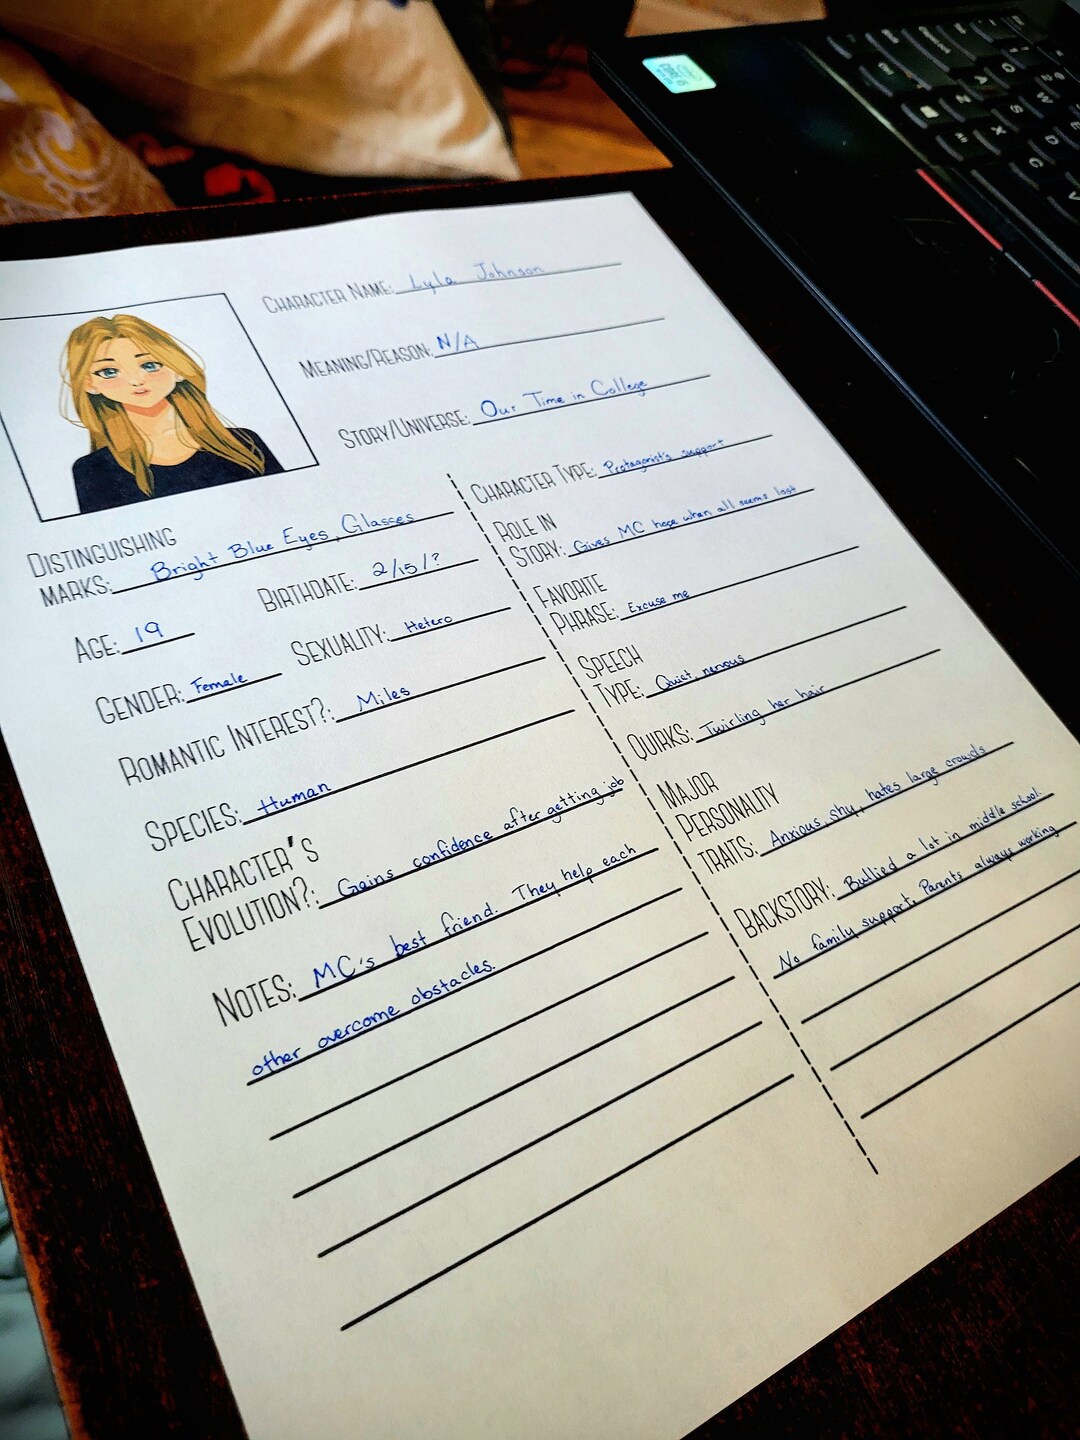 CHARACTER NAME: Lyla Johnson
MEANING/REASON: N/A
STORY/UNIVERSE: Our Time in College
DISTINGUISHING
MARKS: Bright Blue Eyes, Glasses
BIRTHDATE: 2/15/?
AGE: 19
SEXUALITY: Hetero
GENDER: Female
ROMANTIC INTEREST?: Miles
SPECIES: Human
CHARACTER'S
EVOLUTION?: Gains confidence after getting job
NOTES: MC's best friend. They help each
other overcome obstacles.
CHARACTER TYPE: Protagonist's support
ROLE IN
STORY: Gives MC hope when all seems lost
FAVORITE
PHRASE: Excuse me
SPEECH
TYPE: Quiet, nervous
QUIRKS: Twirling her hair
MAJOR
PERSONALITY
TRAITS: Anxious, shy, hates large crowds
BACKSTORY: Bullied a lot in middle school.
No family support. Parents always working